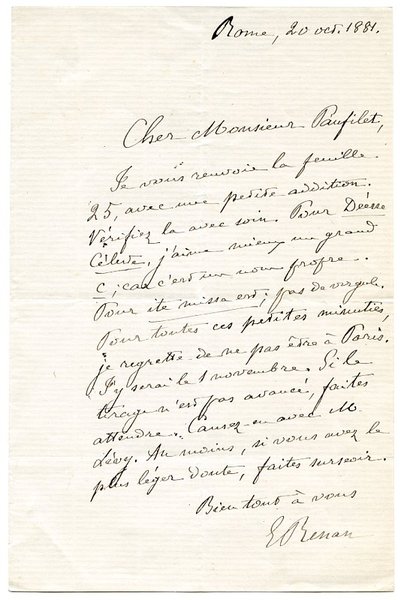 Rome, 20 oct. 1881.
Cher Monsieur Paufilet,
Je vous renvoie la feuille
25, avec une petite addition.
Vérifiez la avec soin. Pour Déesse
Céleste, j'aime mieux un grand
C; car c'est un nom propre.
Pour ite missa est, pas de virgule.
Pour toutes ces petites minuties,
je regrette de ne pas être à Paris.
J'y serai le 1 novembre. Si le
tirage n'est pas avancé, faites
attendre. Causez-en avec M.
Lévy. Au moins, si vous avez le
plus léger doute, faites surseoir.
Bien tout à vous
E Renan